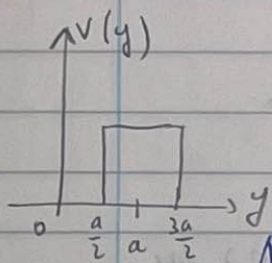 V(y)
y
0 a/2 a 3a/2